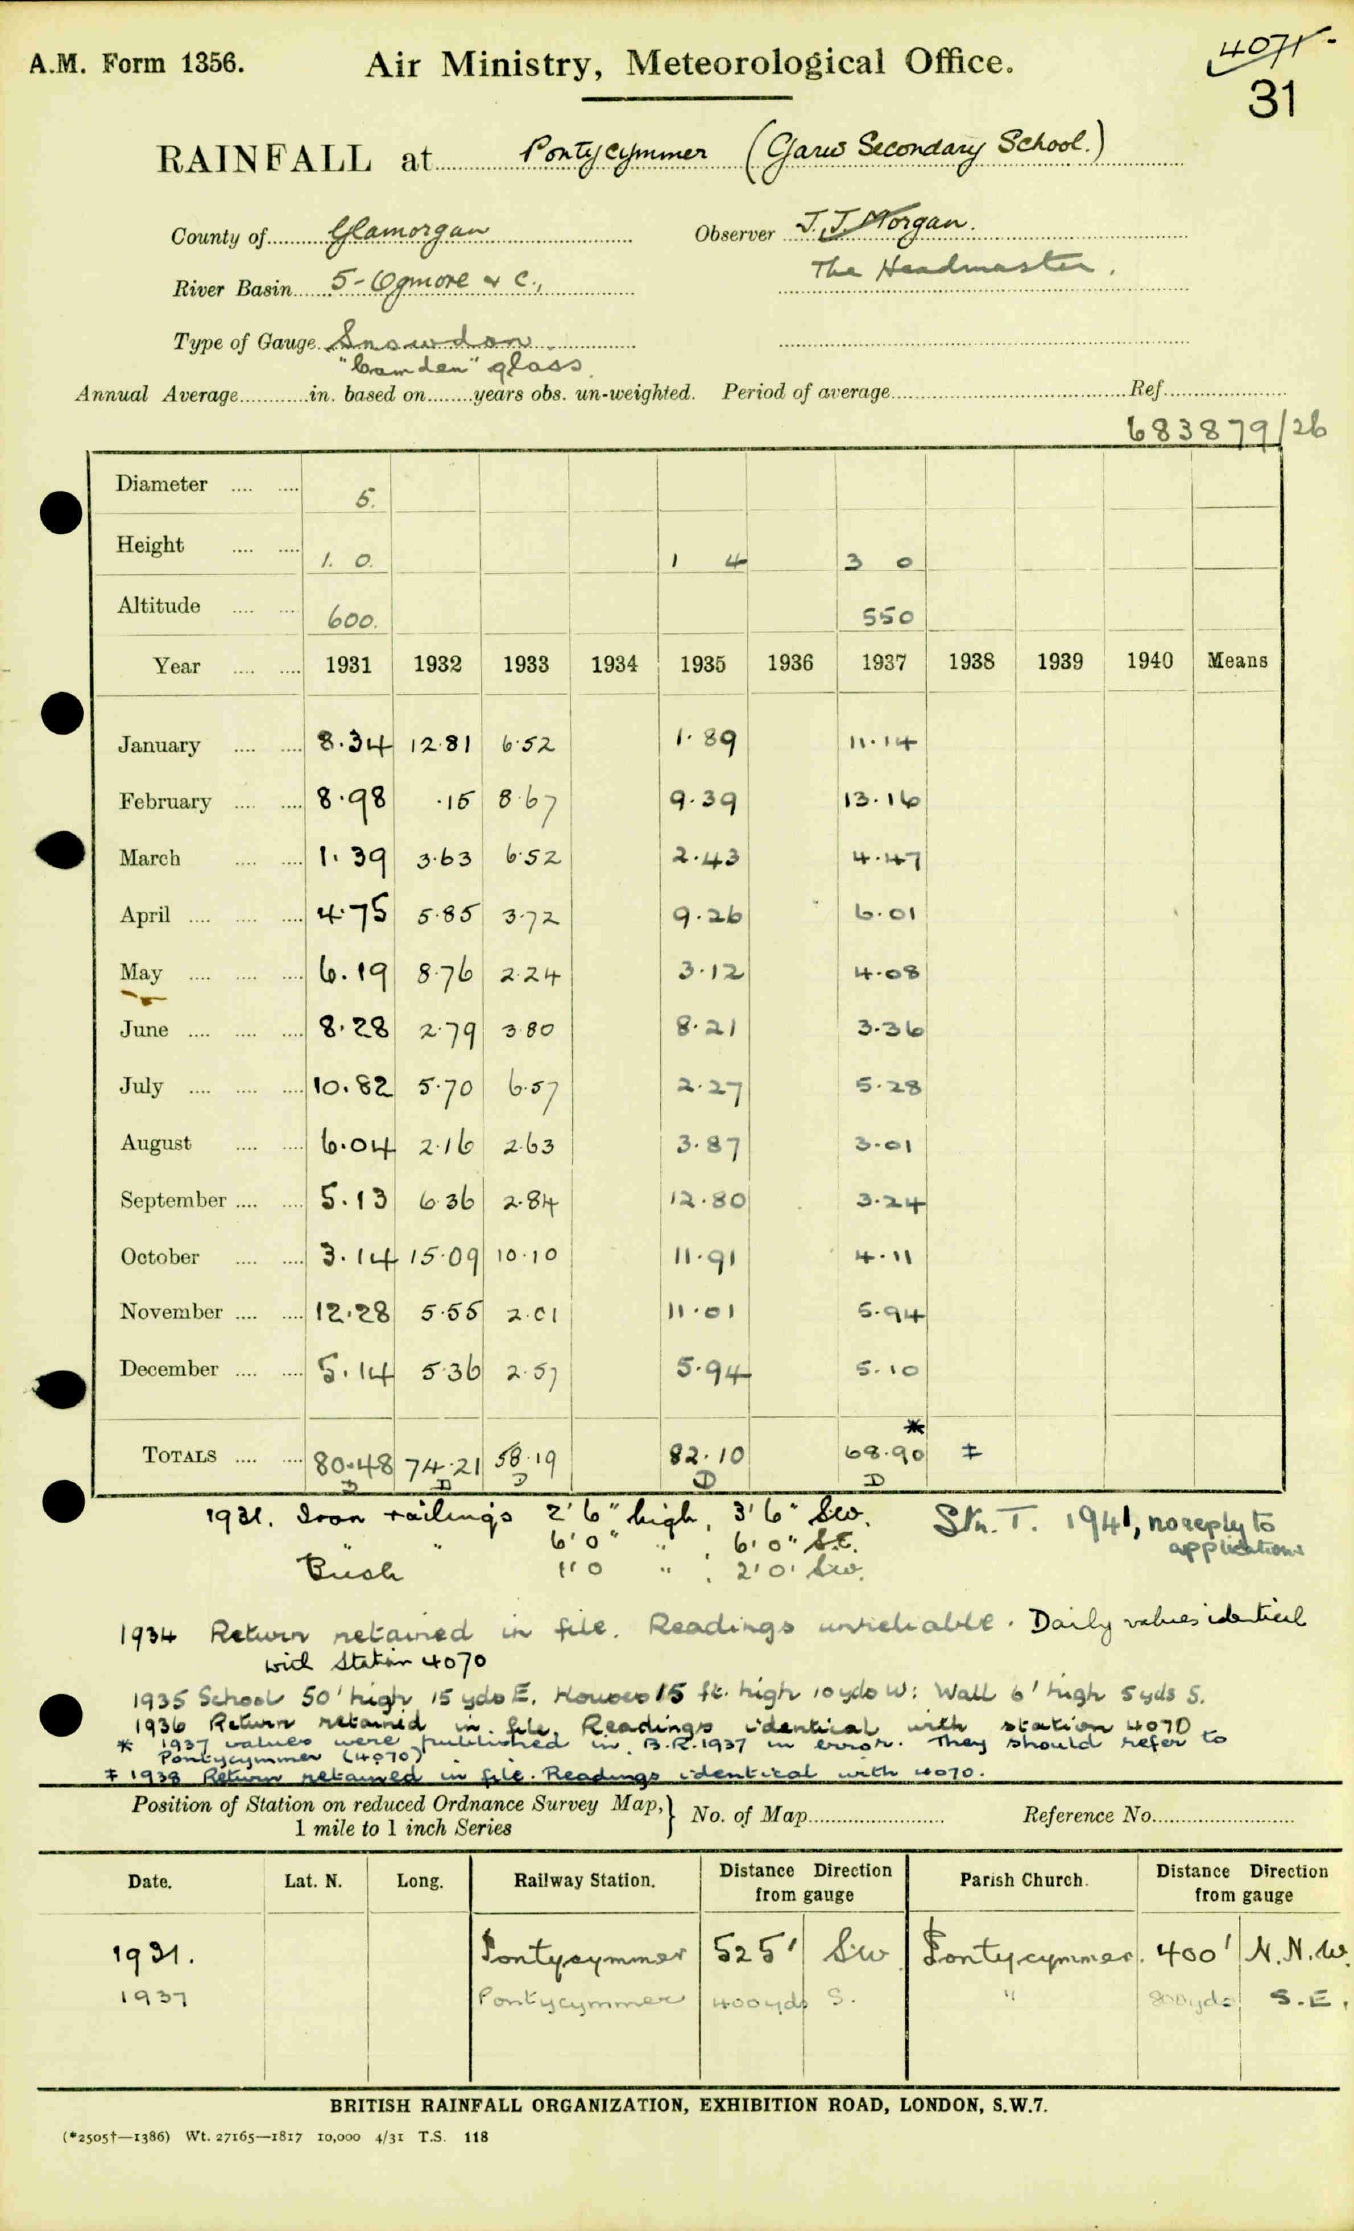 A.M. Form 1356.
Air Ministry, Meteorological Office.
4071
31
RAINFALL at Pontycymmer (Garw Secondary School.)
County of Glamorgan Observer J. J. Morgan.
The Headmaster.
River Basin 5-Ogmore & C.,
Type of Gauge Snowdon
"Camden" glass.
Annual Average in. based on years obs. un-weighted. Period of average Ref.
683879/26
Diameter 5.
Height 1. 0. 1 4 3 0
Altitude 600. 550
Year 1931 1932 1933 1934 1935 1936 1937 1938 1939 1940 Means
January 8.34 12.81 6.52 1.89 11.14
February 8.98 .15 8.67 9.39 13.16
March 1.39 3.63 6.52 2.43 4.47
April 4.75 5.85 3.72 9.26 6.01
May 6.19 8.76 2.24 3.12 4.08
June 8.28 2.79 3.80 8.21 3.36
July 10.82 5.70 6.57 2.27 5.28
August 6.04 2.16 2.63 3.87 3.01
September 5.13 6.36 2.84 12.80 3.24
October 3.14 15.09 10.10 11.91 4.11
November 12.28 5.55 2.01 11.01 5.94
December 5.14 5.36 2.57 5.94 5.10
*
TOTALS 80.48 74.21 58.19 82.10 68.90 ‡
D D D D D
1931. Iron railings 2'6" high, 3'6" SW.
" " 6'0" " ; 6'0" S.E.
Bush 1'0 " ; 2'0' SW.
Stn. T. 1941, no reply to
applications
1934 Return retained in file. Readings unreliable. Daily values identical
with Station 4070
1935 School 50' high 15 yds E. Houses 15 ft. high 10 yds W: Wall 6' high 5 yds S.
1936 Return retained in file. Readings identical with station 4070
* 1937 values were published in B.R. 1937 in error. They should refer to
Pontycymmer (4070)
‡ 1938 Return retained in file. Readings identical with 4070.
Position of Station on reduced Ordnance Survey Map,
1 mile to 1 inch Series
No. of Map Reference No.
Date. Lat. N. Long. Railway Station. Distance Direction from gauge Parish Church. Distance Direction from gauge
1931. Pontycymmer 525' SW Pontycymmer. 400' N.N.W.
1937 Pontycymmer 400 yds S. " 800 yds S.E.
BRITISH RAINFALL ORGANIZATION, EXHIBITION ROAD, LONDON, S.W.7.
(*2505†—1386) Wt. 27165—1817 10,000 4/31 T.S. 118